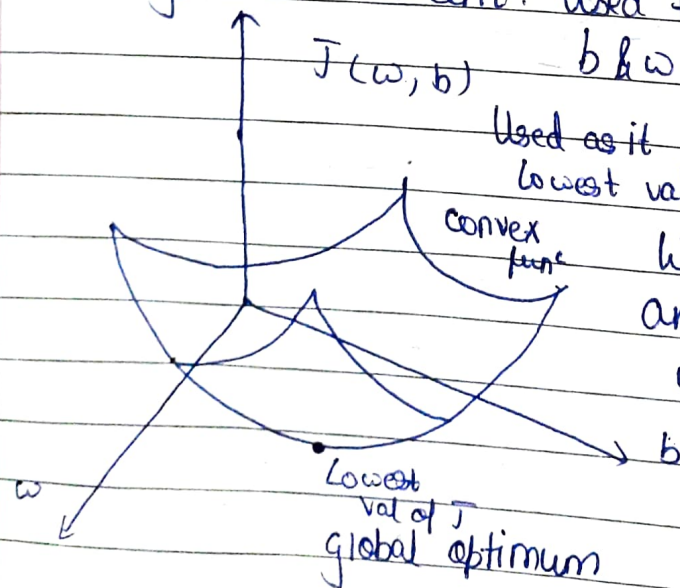 used
J(w, b)
b & w
Used as it
lowest va
convex
func
b
w
Lowest
val of J
global optimum